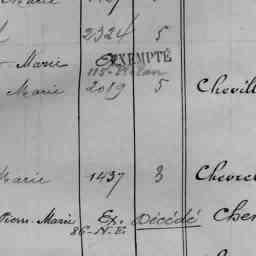 Marie
2324 5
Marie Ex. EXEMPTÉ
Marie 2019 5 Chevill
Marie 1437 3 Chevre
Pierre-Marie Ex. Décédé Che
86-N.E.